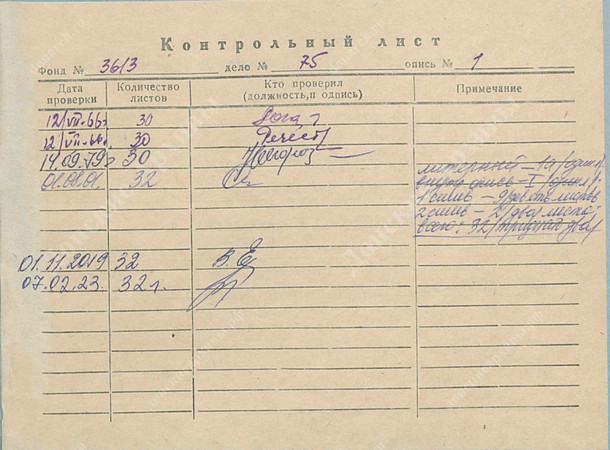 Контрольный лист
Фонд № 3613 дело № 75 опись № 1
Дата проверки Количество листов Кто проверил (должность,п одпись) Примечание
12/VII-66г 30
12/VII-66г. 30
14.09.79г 30
01.08.01. 32
литерный - 1а/один/
опись - I /один/
1 слив - 9
2 слив - 2/два листа/
всего: 32/тридцать два/
01.11.2019 32
07.02.23. 32 л.